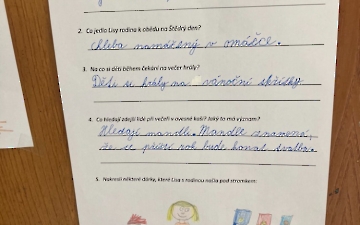 2. Co jedlo Lisy rodina k obědu na Štědrý den?
Chleba namáčený v omáčce.
3. Na co si děti během čekání na večer hrály?
Děti si hrály na vánoční skřítky.
4. Co hledají zdejší lidé při večeři v ovesné kaši? Jaký to má význam?
Hledají mandle. Mandle znamená,
že se příští rok bude konat svatba.
5. Nakresli některé dárky, které Lisa s rodinou našla pod stromkem: